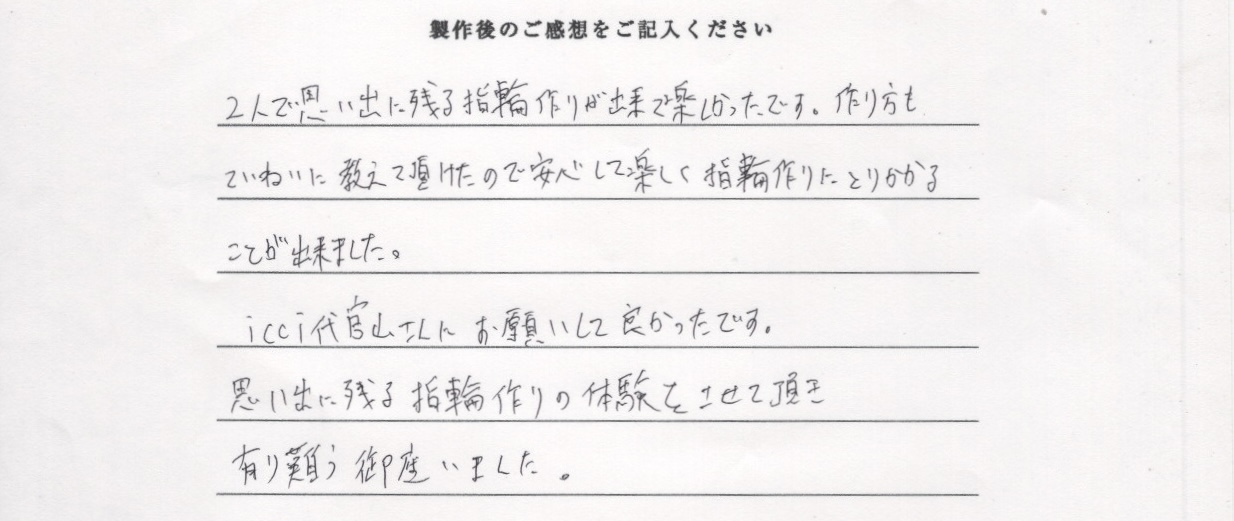 製作後のご感想をご記入ください
2人で思い出に残る指輪作りが出来て楽しかったです。作り方も
ていねいに教えて頂けたので安心して楽しく指輪作りにとりかかる
ことが出来ました。
icci代官山さんにお願いして良かったです。
思い出に残る指輪作りの体験をさせて頂き
有り難う御座いました。